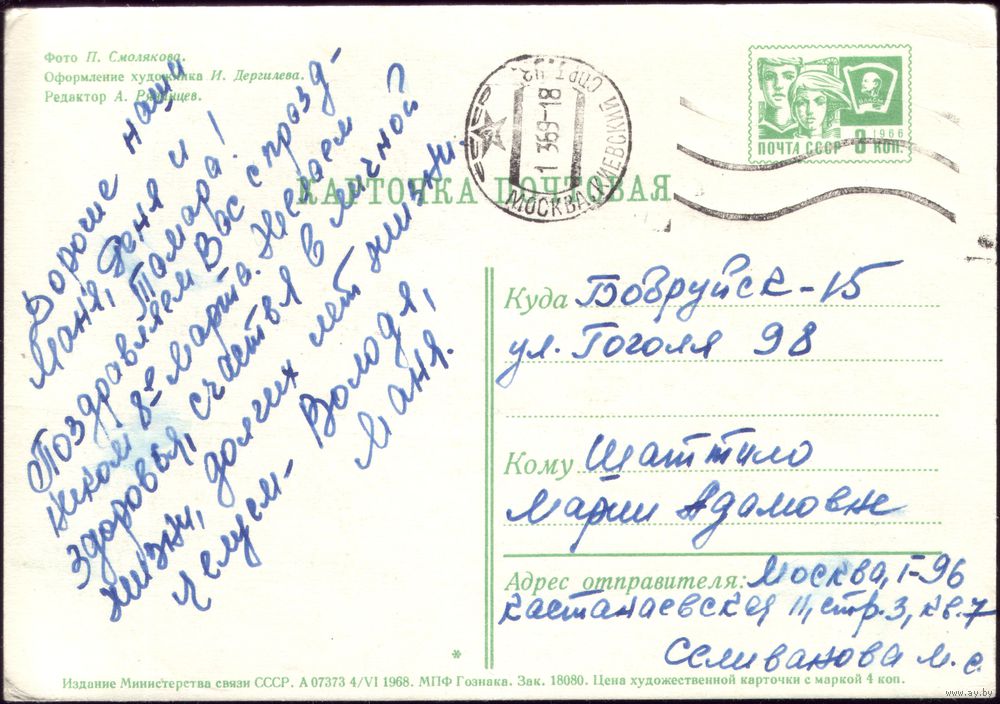 Фото П. Смолякова.
Оформление художника И. Дергилева.
Редактор А. Рязанцев.
КАРТОЧКА ПОЧТОВАЯ
ПОЧТА СССР 3 КОП.
1966
МОСКВА КИЕВСКИЙ СОРТ.
1 369-18
Дорогие наши
Маня, Геня и
Тамара!
Поздравляем Вас с празд-
ником 8е марта. Желаем
здоровья, счастья в личной
жизни, долгих лет жизни.
Целуем - Володя,
Маня.
Куда Бобруйск-15
ул. Гоголя 98
Кому Шаттило
Марии Адамовне
Адрес отправителя: Москва, Г-96
Кастанаевская 11, стр. 3, кв. 7
Селиванова М. С.
*
Издание Министерства связи СССР. А 07373 4/VI 1968. МПФ Гознака. Зак. 18080. Цена художественной карточки с маркой 4 коп.
www.ay.by